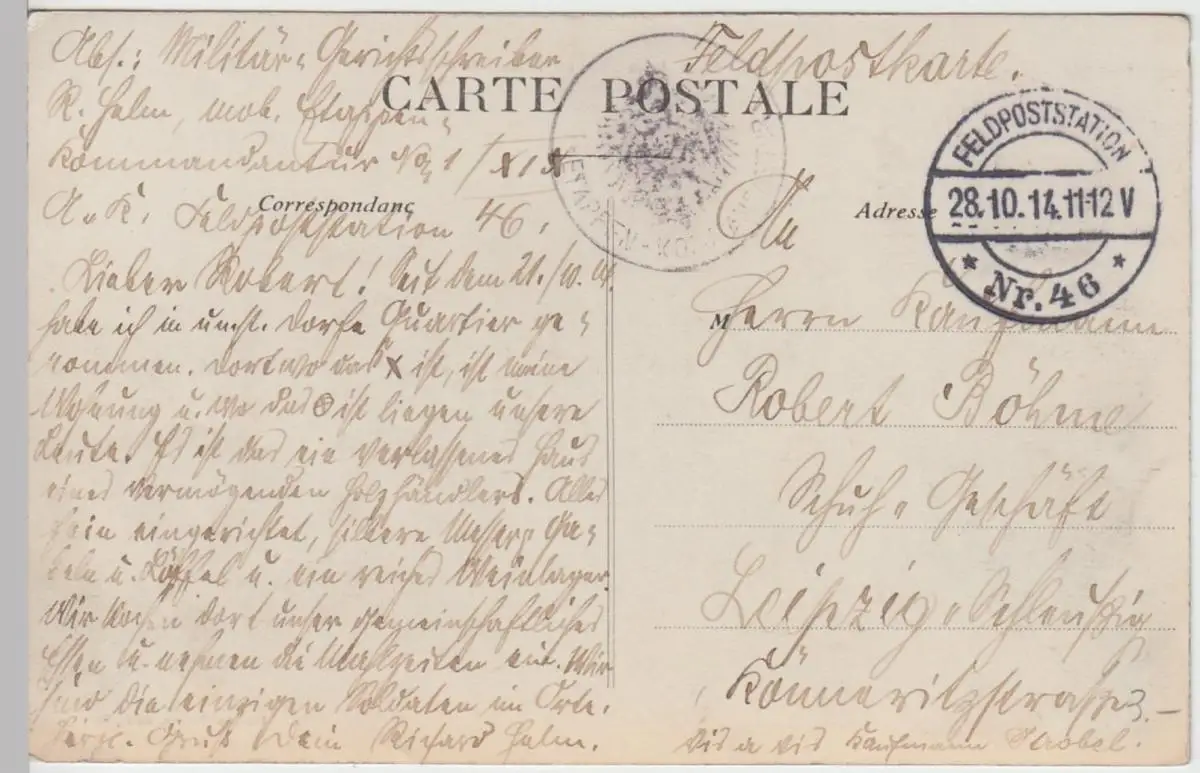 Abs.: Militär-Gerichtsschreiber
R. Helm, mob. Etappen-
Kommandantur No. 1/XIX
A. K. Feldpoststation 46.
Lieber Robert! Seit dem 21./10.
habe ich in umst. Dorfe Quartier ge-
nommen. Dort wo das X ist, ist meine
Wohnung u. wo das ist liegen unsere
Leute. Es ist das ein verlassenes Haus
eines vermögenden Holzhändlers. Alles
fein eingerichtet, silberne Messer, Ga-
beln u. Löffel u. ein reiches Weinlager.
Wir kochen dort unser gemeinschaftliches
Essen u. nehmen die Mahlzeiten ein. Wir
sind die einzigen Soldaten im Orte.
Herzl. Gruß Dein Richard Helm.
CARTE POSTALE
Correspondance
Feldpostkarte.
FELDPOSTSTATION
28.10.14.11-12V
* Nr. 46 *
ETAPPEN-KOM
Adresse
An
M
Herrn Kaufmann
Robert Böhme
Schuh-Geschäft
Leipzig-Schleußig
Könneritzstraße
vis a vis Kaufmann Strobel.